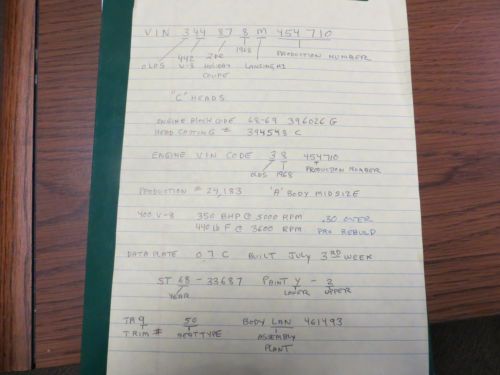 VIN 344 87 8 M 454 710
1968
OLDS 442 V-8 2DR HOLIDAY COUPE LANSING MI PRODUCTION NUMBER
"C" HEADS
ENGINE BLOCK CODE 68-69 396026 G
HEAD CASTING # 394548 C
ENGINE VIN CODE 38 454710
OLDS 1968 PRODUCTION NUMBER
PRODUCTION # 24,183 'A' BODY MIDSIZE
400 V-8 350 BHP @ 5000 RPM .30 OVER
440 lb F @ 3600 RPM PRO REBUILD
DATA PLATE 07C BUILT JULY 3RD WEEK
ST 68 - 33687 PAINT Y - 2
YEAR LOWER UPPER
TR 9 50 BODY LAN 461493
TRIM # SEAT TYPE ASSEMBLY
PLANT